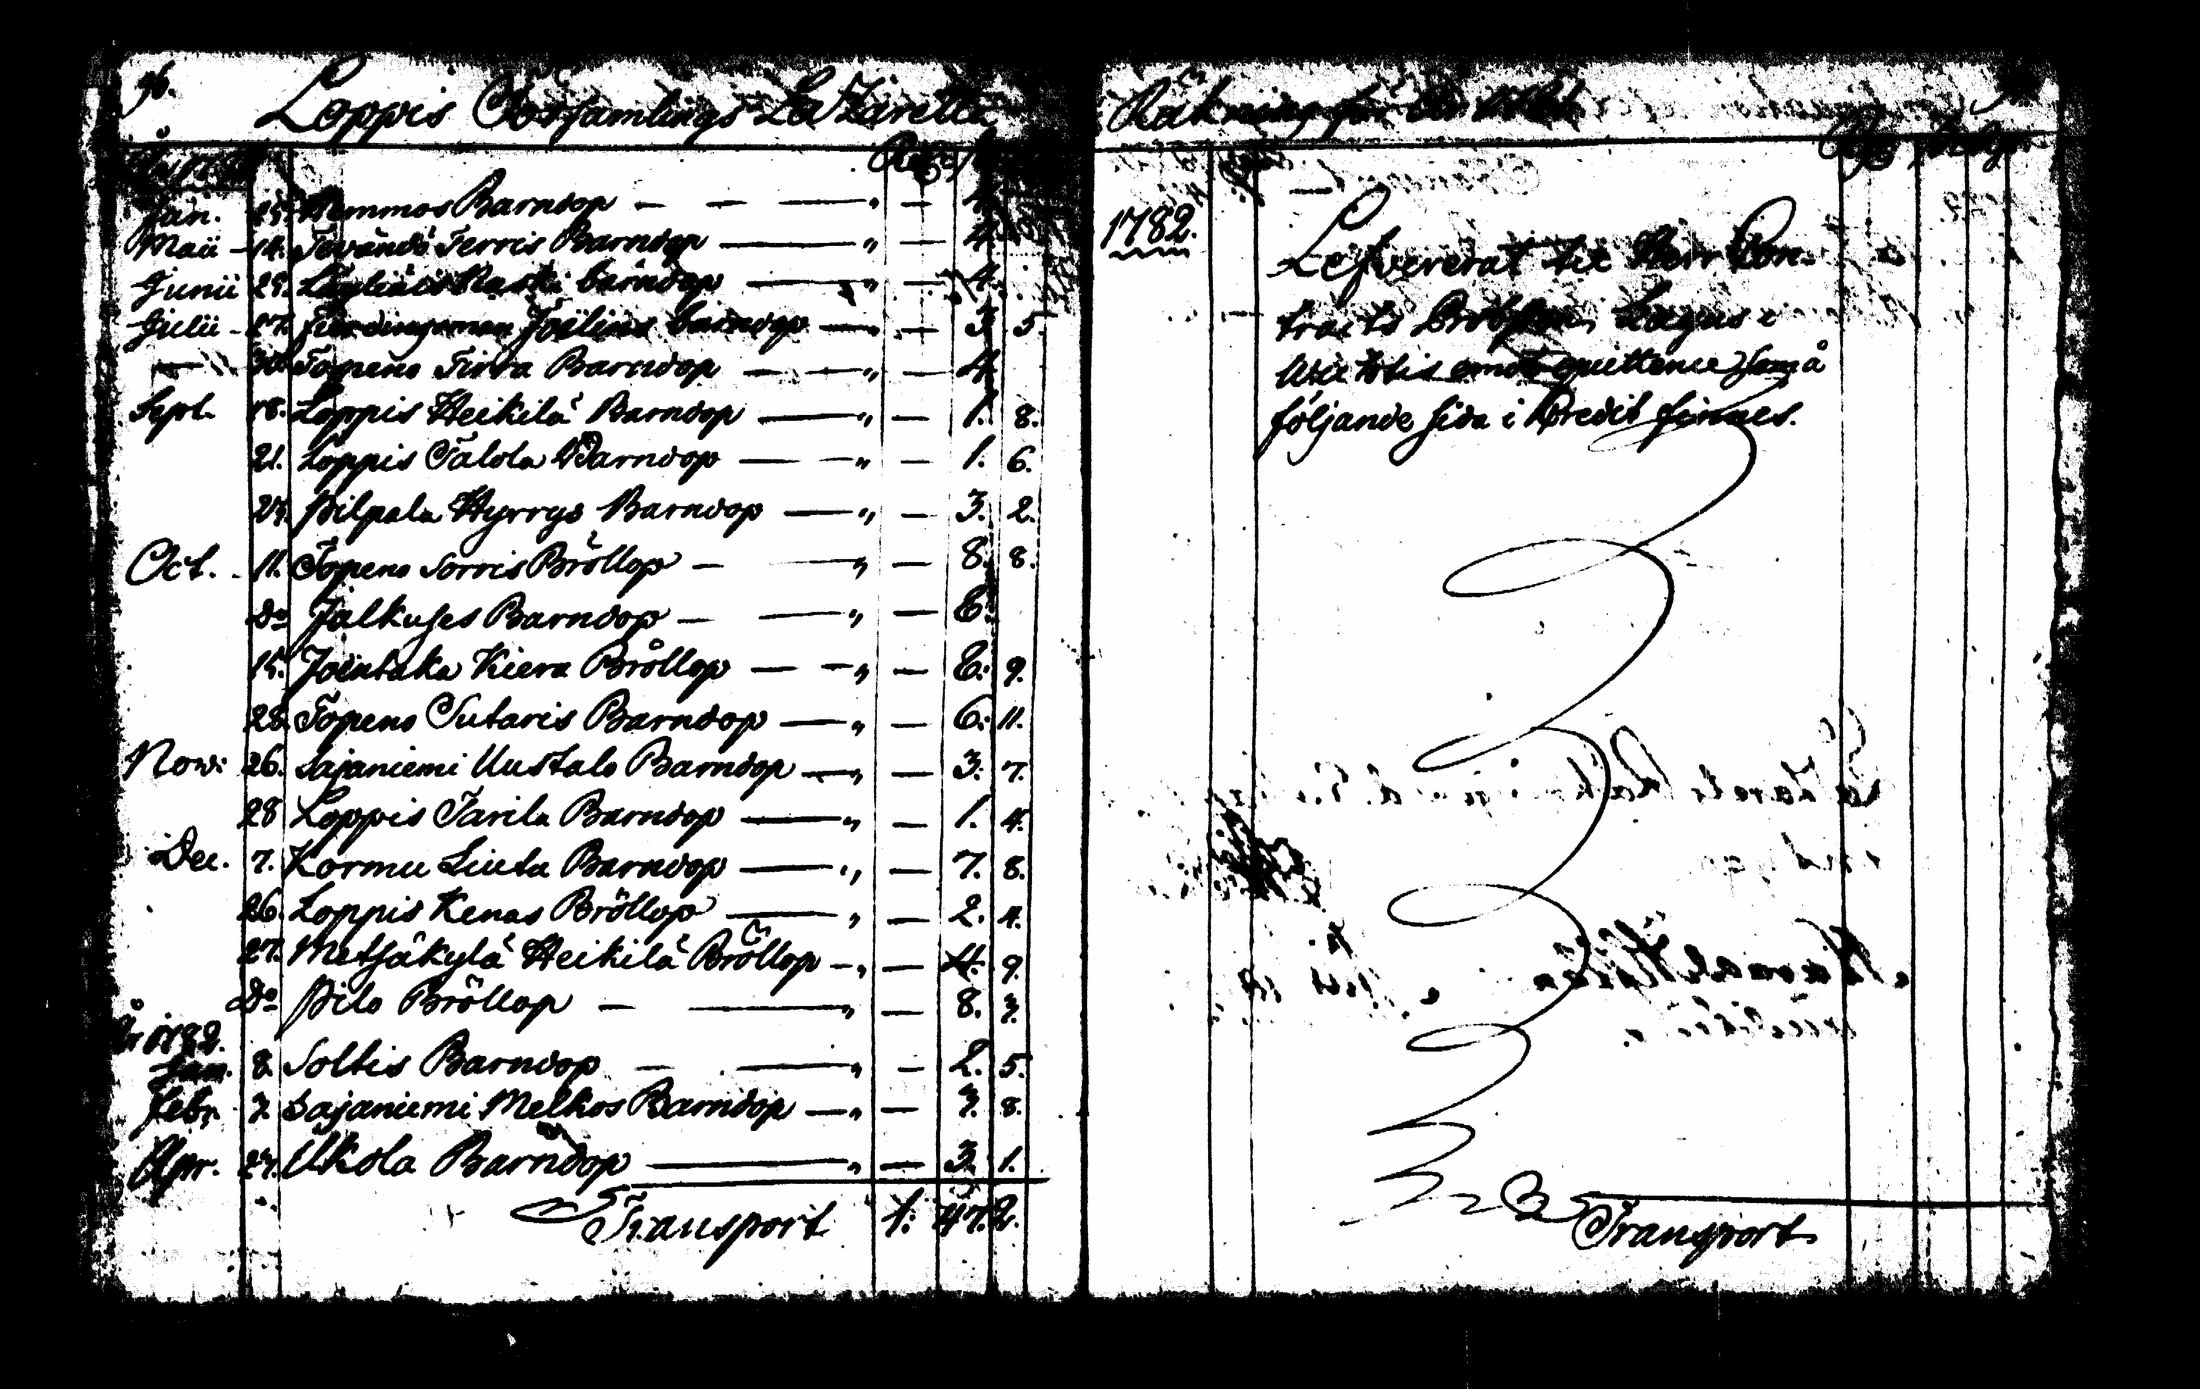 96.
Loppis Församlings LaZaretts
Jan. 25. Hemmos Barndop — — — " — 4.
Maii - 14. Tevändö Terris Barndop — " — 4.
Junii 29. Läyliäis Raski barndop — " — 4.
Julii - 17. Joilius barndop — " — 3. 5.
30. Topeno Tirra Barndop — — " — 4.
Sept. 18. Loppis Heikilä Barndop — " — 1. 8.
21. Loppis Talola Barndop — — " — 1. 6.
29. Pilpala Hyrrys Barndop — " — 3. 2.
Oct. - 11. Topeno Sorris Bröllop — — " — 8. 8.
Do Jälkuses Barndop — — " — 6.
15. Joentaka Kiera Bröllop — — " — 6. 9.
28. Topeno Sutaris Barndop — " — 6. 11.
Now: 26. Sajaniemi Uustalo Barndop — " — 3. 7.
28 Loppis Tarila Barndop — " — 1. 4.
Dec. 7. Kormu Liuta Barndop — " — 7. 8.
26. Loppis Kenas Bröllop — " — 2. 4.
27. Metsäkylä Heikilä Bröllop — " — 4. 9.
Do Pilo Bröllop — — " — 8. 3.
År 1782.
Jan. 8. Soltis Barndop — — " — 2. 5.
Febr. 7. Sajaniemi Melkos Barndop — " — 3. 8.
Apr. 27. Ukola Barndop — " — 3. 1.
Transport 1. 47. 2.
Räkning för År 1781
1782.
Lefvererat til Herr Con-
tracts Probsten Lagus i
emot quittence som å
följande sida i Credit finnes.
Transport